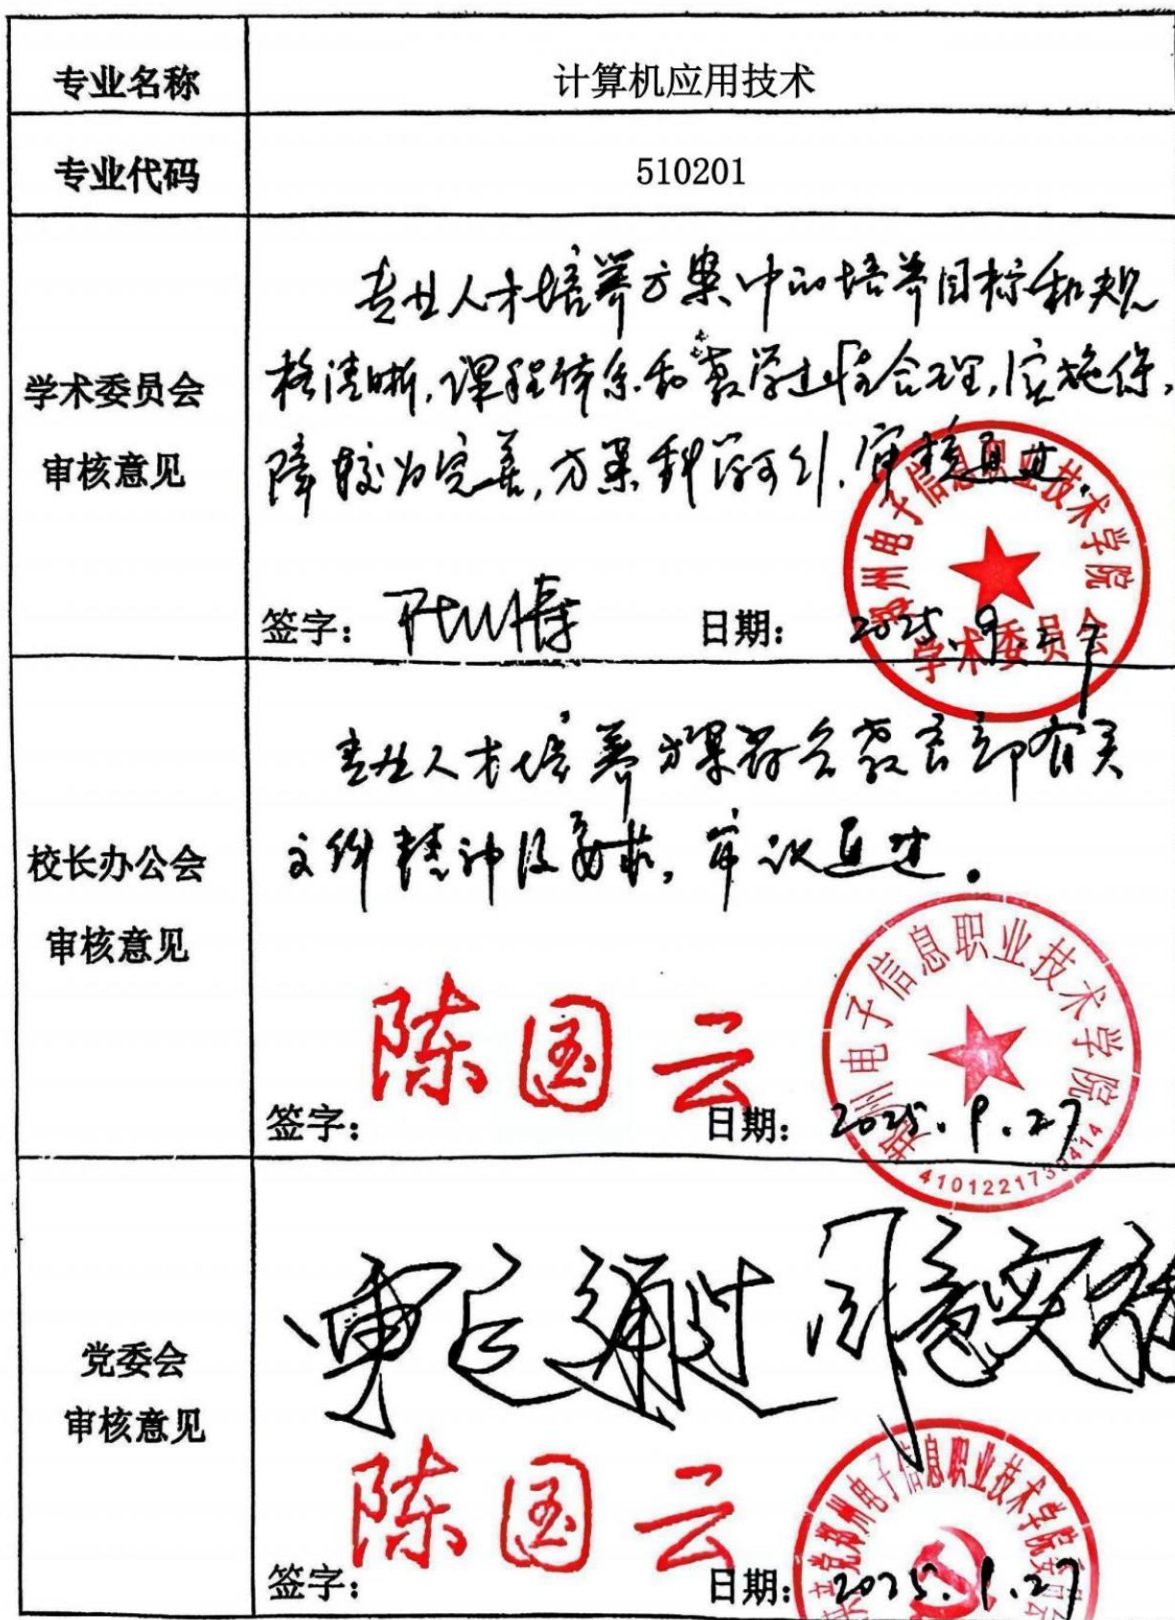 专业名称
计算机应用技术
专业代码
510201
学术委员会
审核意见
专业人才培养方案中的培养目标和规
格清晰,课程体系和教学进程合理,实施保
障较为完善,方案科学可行,审核通过.
签字:
日期: 2025.9.27
郑州电子信息职业技术学院
学术委员会
校长办公会
审核意见
专业人才培养方案符合教育部有关
文件精神及要求,审议通过。
陈国云
签字:
日期: 2025.9.27
郑州电子信息职业技术学院
党委会
审核意见
审定通过 同意实施
陈国云
签字:
日期: 2025.9.27
郑州电子信息职业技术学院